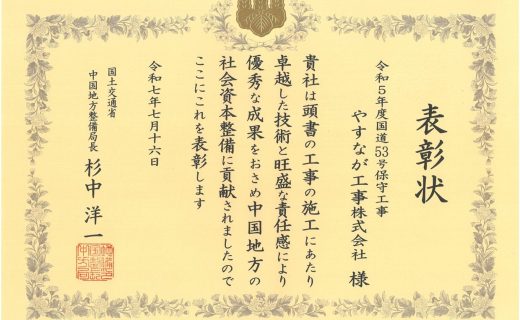 表彰状
令和5年度国道53号保守工事
やすなが工事株式会社 様
貴社は頭書の工事の施工にあたり
卓越した技術と旺盛な責任感により
優秀な成果をおさめ中国地方の
社会資本整備に貢献されましたので
ここにこれを表彰します
令和七年七月十六日
国土交通省
中国地方整備局長 杉中洋一